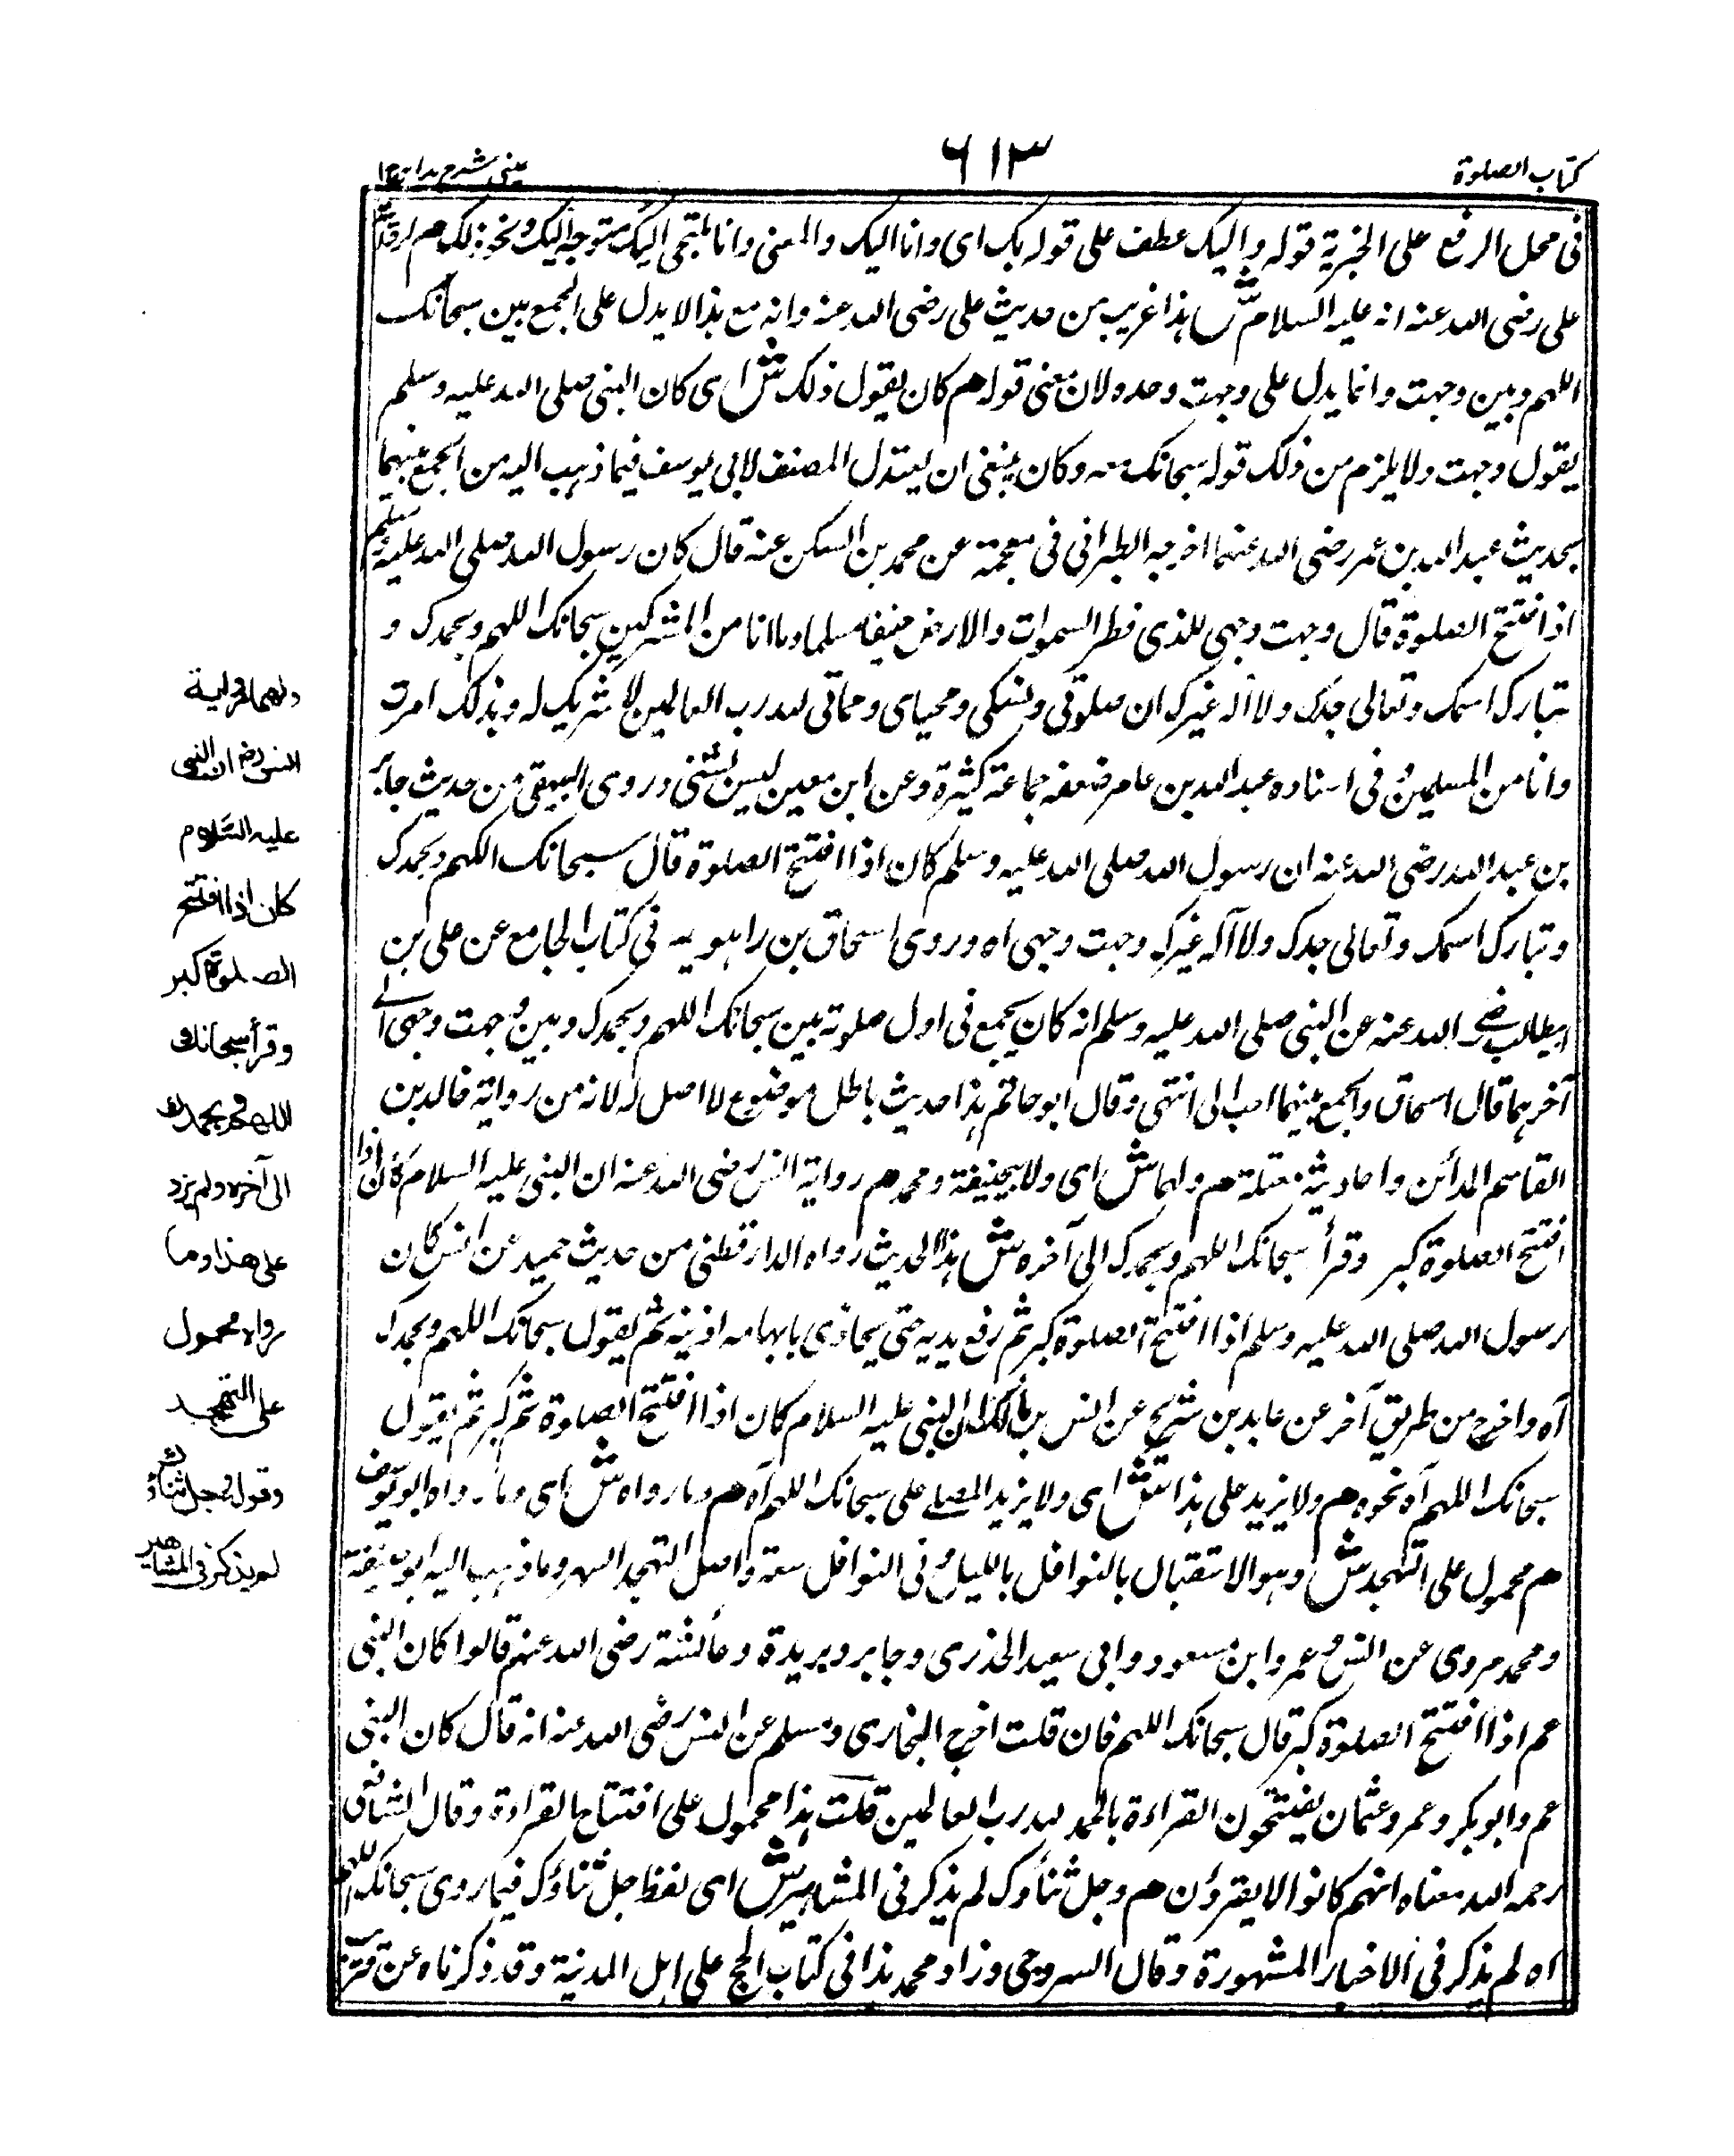 كتاب الصلوة
٦١٣
عينى شرح هدايه ج١
فى محل الرفع على الخبرية قوله واليك عطف على قوله بك اى وانا اليك والمعنى وانا ملتجى اليك متوجه اليك ونحو ذلك هم لرواية
على رضى الله عنه انه عليه السلام ش هذا غريب من حديث على رضى الله عنه وانه مع هذا لا يدل على الجمع بين سبحانك
اللهم وبين وجهت وانما يدل على وجهت وحده لان معنى قوله هم كان يقول ذلك ش اى كان النبى صلى الله عليه وسلم
يقول وجهت ولا يلزم من ذلك قوله سبحانك معه وكان ينبغى ان يستدل المصنف لابى يوسف فيما ذهب اليه من الجمع بينهما
بحديث عبد الله بن عمر رضى الله عنهما اخرجه الطبرانى فى معجمة عن محمد بن السكن عنه قال كان رسول الله صلى الله عليه وسلم
اذا افتتح الصلوة قال وجهت وجهى للذى فطر السموات والارض حنيفا مسلما وما انا من المشركين سبحانك اللهم وبحمدك و
تبارك اسمك وتعالى جدك ولا اله غيرك ان صلوتى ونسكى ومحياى ومماتى لله رب العالمين لا شريك له وبذلك امرت
وانا من المسلمين وفى اسناده عبد الله بن عامر ضعفه جماعة كثيرة وعن ابن معين ليس بشئى وروى البيهقى من حديث جابر
بن عبد الله رضى الله عنه ان رسول الله صلى الله عليه وسلم كان اذا افتتح الصلوة قال سبحانك اللهم وبحمدك
وتبارك اسمك وتعالى جدك ولا آله غيرك وجهت وجهى اه وروى اسحاق بن راهويه فى كتاب الجامع عن على بن
ابيطالب رضى الله عنه عن النبى صلى الله عليه وسلم انه كان يجمع فى اول صلوته بين سبحانك اللهم وبحمدك وبين وجهت وجهى الى
آخرهما قال اسحاق والجمع بينهما احب الى انتهى وقال ابو حاتم هذا حديث باطل موضوع لا اصل له لانه من رواية خالد بن
القاسم المدائن واحاديثه مفتعلة هم ولهما ش اى ولابيحنيفة ومحمد هم رواية انس رضى الله عنه ان النبى عليه السلام كان اذا
افتتح الصلوة كبر وقرأ سبحانك اللهم وبحمدك الى آخره ش هذا الحديث رواه الدارقطنى من حديث حميد عن انس كان
رسول الله صلى الله عليه وسلم اذا افتتح الصلوة كبر ثم رفع يديه حتى يحاذى بابهامه اذنيه ثم يقول سبحانك اللهم وبحمدك
آه واخرج من طريق آخر عن عابد بن شريح عن انس بن مالك ان النبى عليه السلام كان اذا افتتح الصلوة ثم كبر ثم يقول
سبحانك اللهم آه نحوه هم ولا يزيد على هذا ش اى ولا يزيد المصلى على سبحانك اللهم آه هم وما رواه ش اى وما رواه ابو يوسف
هم محمول على التهجد ش وهو الاستقبال بالنوافل بالليل وفى النوافل سعة واصل التهجد السهر وما ذهب اليه ابو حنيفة
ومحمد مروى عن انس وعمر وابن مسعود وابى سعيد الخذرى وجابر وبريدة وعائشة رضى الله عنهم قالوا كان النبى
عم اذا افتتح الصلوة كبر قال سبحانك اللهم فان قلت اخرج البخارى ومسلم عن انس رضى الله عنه انه قال كان النبى
عم وابو بكر وعمر وعثمان يفتتحون القراءة بالحمد لله رب العالمين قلت هذا محمول على افتتاح القراءة وقال الشافعى
رحمه الله معناه انهم كانوا لا يقرؤن هم وجل ثناؤك لم يذكر فى المشاهير ش اى لفظ جل ثناؤك فيما روى سبحانك اللهم
اه لم يذكر فى الاخبار المشهورة وقال السروجى وزاد محمد هذا فى كتاب الحج على اهل المدنية وقد ذكرناه عن قريب
ولهما رواية
انس رضى ان النبى
عليه السلام
كان اذا افتتح
الصلوة كبر
وقرأ سبحانك
اللهم وبحمدك
الى آخره ولم يزد
على هذا وما
رواه محمول
على التهجد
وقوله وجل ثناؤك
لم يذكر فى المشاهير